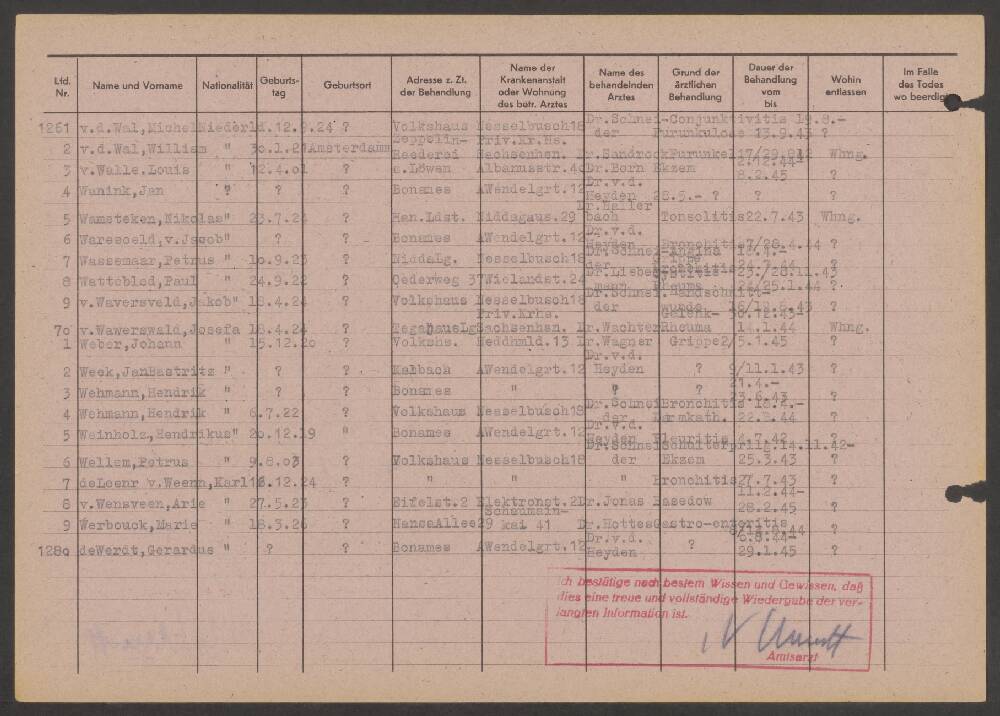 Lfd. Nr. Name und Vorname Nationalität Geburts-tag Geburtsort Adresse z. Zt. der Behandlung Name der Krankenanstalt oder Wohnung des betr. Arztes Name des behandelnden Arztes Grund der ärztlichen Behandlung Dauer der Behandlung vom bis Wohin entlassen Im Falle des Todes wo beerdigt
1261 v.d.Wal,Michel Niederld. 12.9.24 ? Volkshaus Nesselbusch18 Dr.Schnei-der Conjunktivitis Furunkulose 19.8.- 13.9.43 ?
2 v.d.Wal,William " 30.1.21 Amsterdam Zeppelin-Reederei Priv.Kr.Hs. Sachsenhsn. Dr.Sandrock Furunkel Whng.
3 v.Walle,Louis " 12.4.01 ? e.Löwen Albanusstr.40 Dr.Born Ekzem 2.12.44- 8.2.45 ?
4 Wanink,Jan ? ? ? Bonames AWendelgrt.12 Dr.v.d. Heyden 28.5.- ? ? ?
5 Wamsteken,Nikolas " 23.7.24 ? Han.Ldst. Niddagaus.29 Dr.Haller bach Tonsolitis 22.7.43 Whng.
6 Waresoeld,v.Jacob " ? ? Bonames AWendelgrt.12 Dr.v.d. Heyden Bronchitis 7/28.4.44 ?
7 Wassemaar,Petrus " 10.9.23 ? NiddaLg. Nesselbusch18 Dr.Schnei-der Angina 18.4.- 24.3.44 ?
8 Watteblad,Paul " 24.9.22 ? Oederweg 37 Wielandst.24 Dr.Liebe mann Rheuma 23./28.11.43 24/25.1.44 ?
9 v.Waversveld,Jakob " 18.4.24 ? Volkshaus Nesselbusch18 Dr.Schnei.der Handschnitt-wunde 16/19.6.43 ?
70 v.Wawerswald,Josefa 18.4.24 ? Priv.Krhs. Sachsenhsn. Dr.Wachter Gelenk-Rheuma 30.12.43- 14.1.44 Whng.
1 Weber,Johann " 15.12.20 ? Volkshs. Heddhmld.13 Dr.Wagner Grippe 2/5.1.45 ?
2 Weck,JanBastritz " ? ? Kalbach AWendelgrt.12 Dr.v.d. Heyden ? 9/11.1.43 ?
3 Wehmann,Hendrik " ? ? Bonames " " ? 21.4.- 23.6.43 ?
4 Wehmann,Hendrik " 6.7.22 ? Volkshaus Nesselbusch18 Dr.Schnei der Bronchitis Darmkath. 18.4.- 22.3.44 ?
5 Weinholz,Hendrikus " 20.12.19 " Bonames AWendelgrt.12 Dr.v.d. Heyden Pleuritis 4.7.42 ?
6 Wellem,Petrus " 9.8.03 ? Volkshaus Nesselbusch18 Dr.Schnei der Schulterprllg. Ekzem 14.11.42- 25.3.43 ?
7 deLeenr v.Weenn,Karl 16.12.24 ? " " " Bronchitis 27.7.43 ?
8 v.Wensveen,Arie " 27.5.23 ? Eifelst.2 Elektronst.2 Dr.Jonas Basedow 11.2.44- 28.2.45 ?
9 Werbouck,Marie " 18.3.26 ? HansaAllee29 Schaumain-kai 41 Dr.Hottes Gastro-enteritis ?
1280 deWerdt,Gerardus " ? ? Bonames AWendelgrt.12 Dr.v.d. Heyden ? 6.8.44- 29.1.45 ?
Ich bestätige nach bestem Wissen und Gewissen, daß
dies eine treue und vollständige Wiedergabe der ver-
langten Information ist.
Amtsarzt